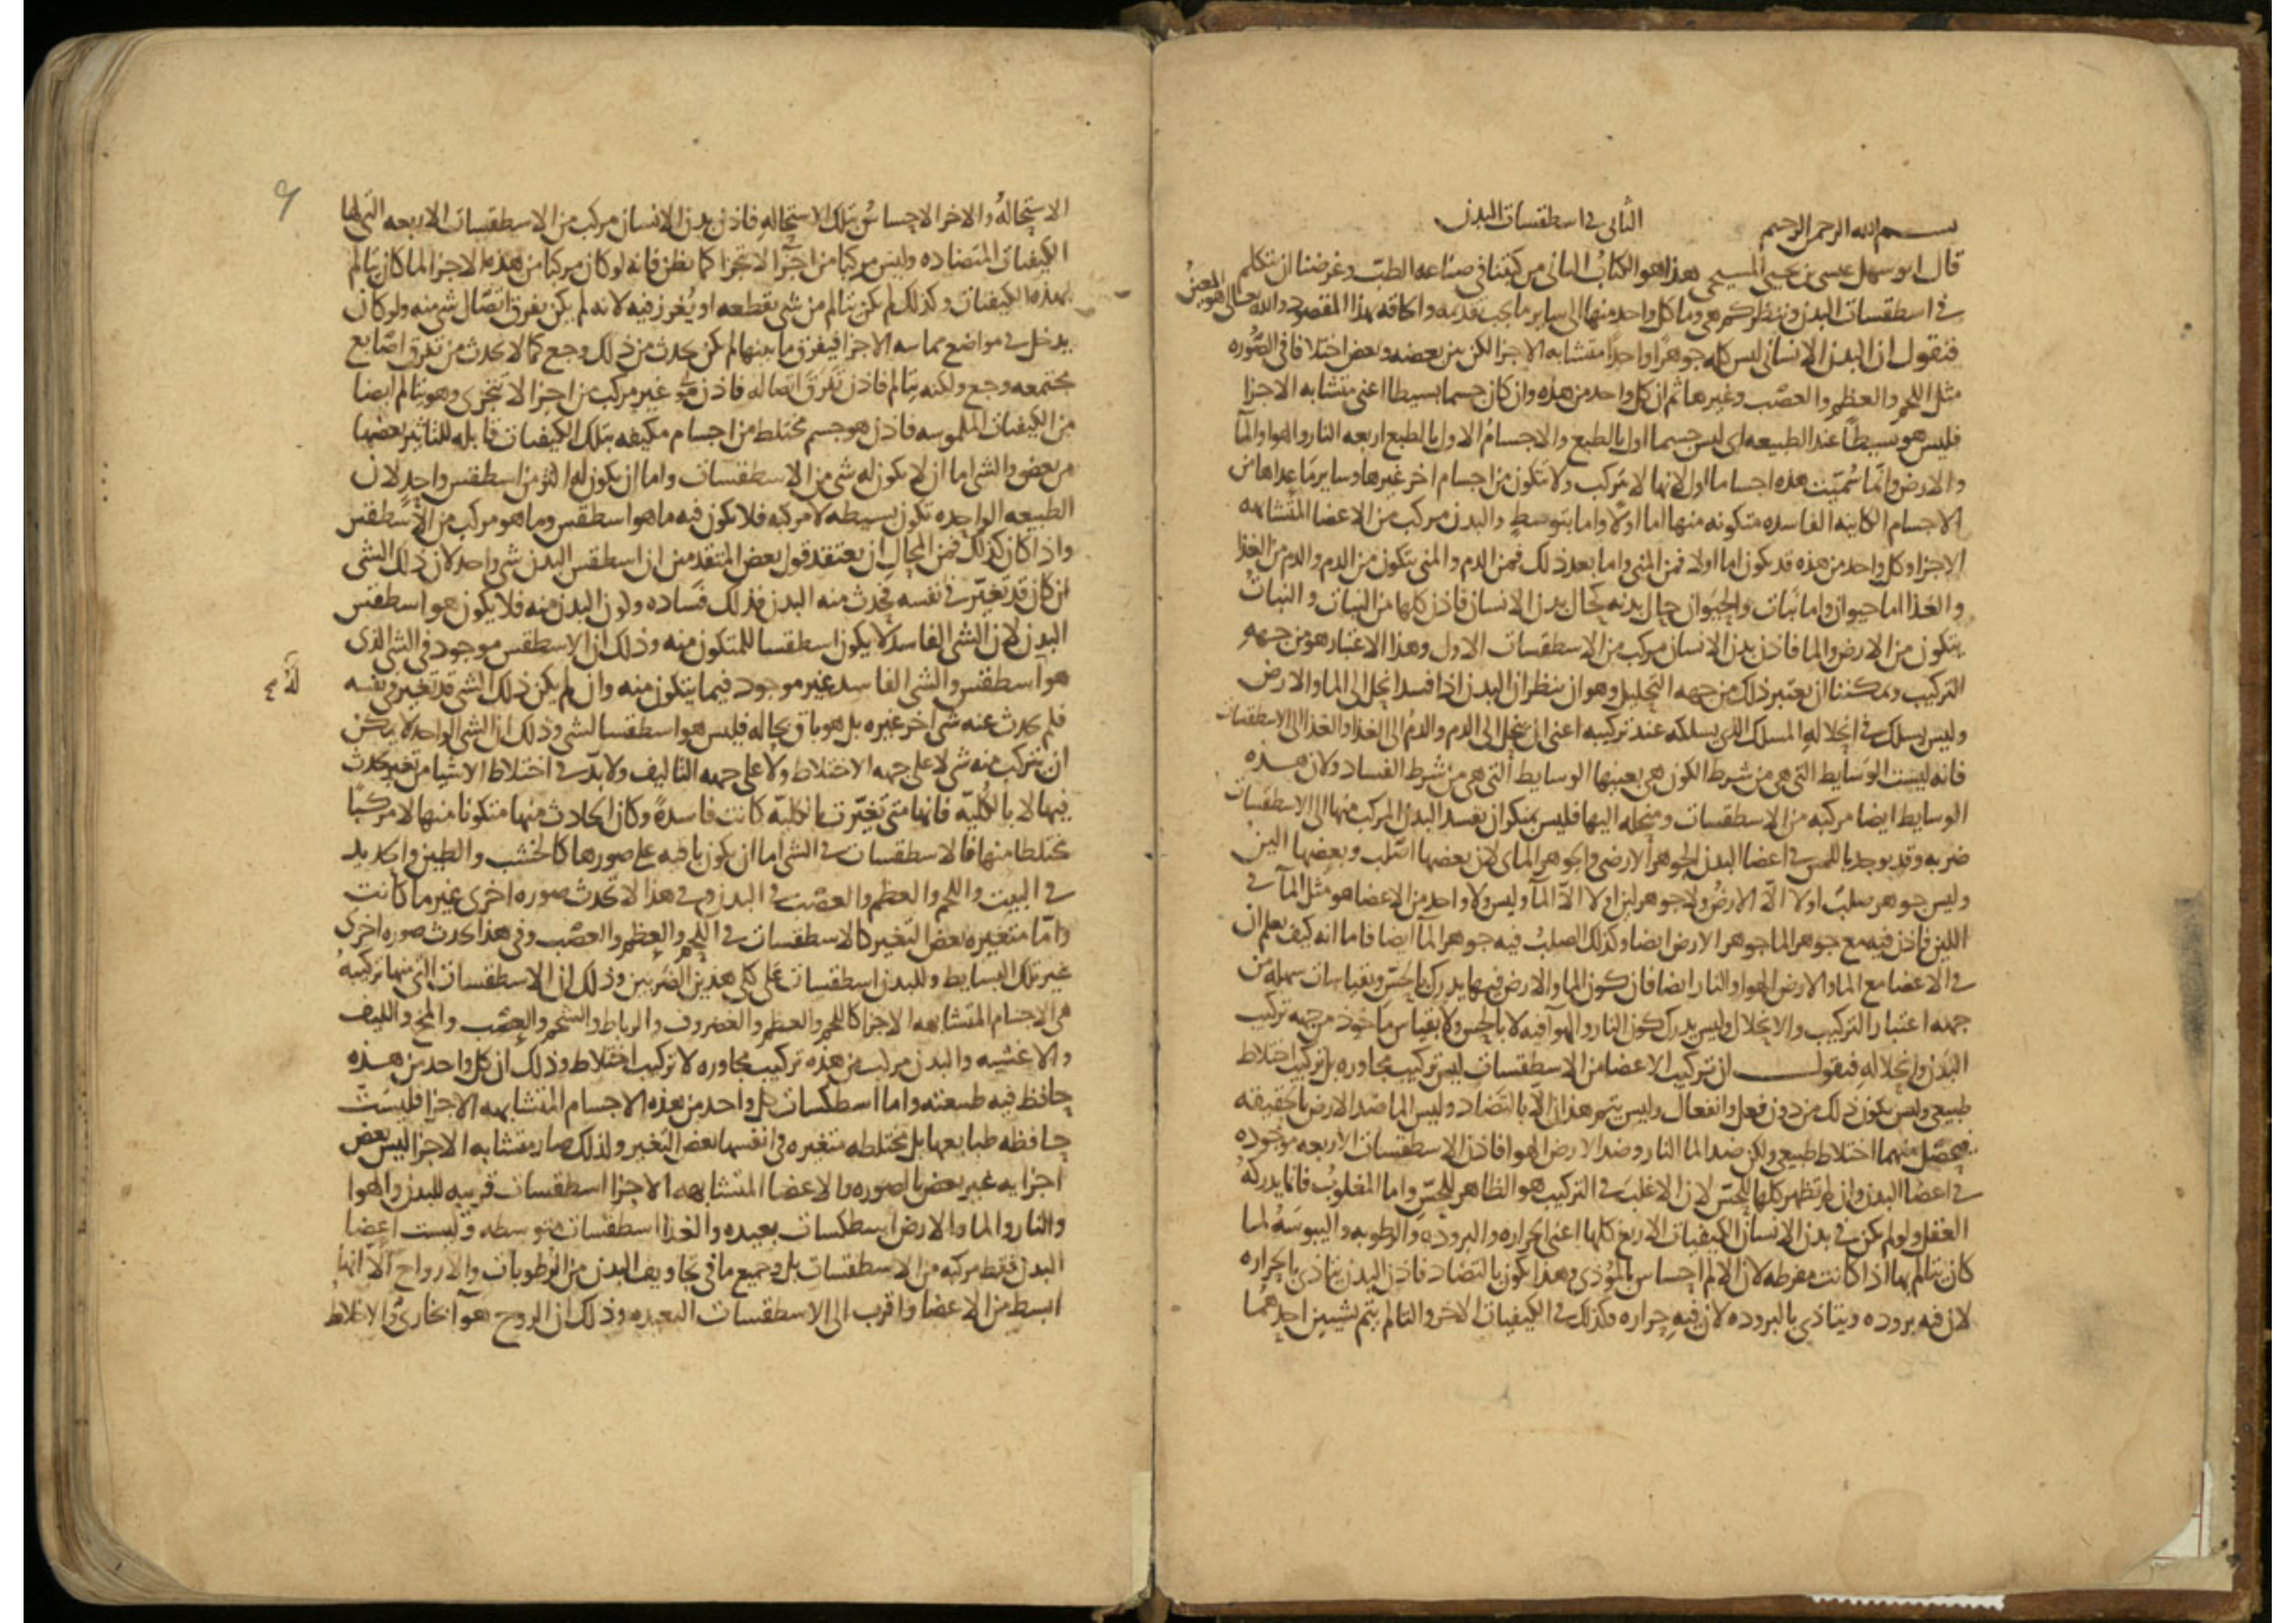 بسم الله الرحمن الرحيم الثاني في اسطقسات البدن
قال ابو سهل عيسى بن يحيى المسيحي هذا هو الكتاب الثاني من كتبنا في صناعه الطب وغرضنا ان نتكلم
في اسطقسات البدن وننظر كم هي وما كل واحد منها الى ساير ما يجب تقدمه واكافه بهذا المقصود والله تعالى هو المعين
فنقول ان البدن الانساني ليس كله جوهرا واحدا متشابه الاجزا لكن بين بعضه وبعض اختلافا في الصوره
مثل اللحم والعظم والعصب وغيرها ثم ان كل واحد من هذه وان كان جسما بسيطا اعني متشابه الاجزا
فليس هو بسيطا عند الطبيعه اي ليس جسما اول بالطبع والاجسام الاول بالطبع اربعه النار والهوا والما
والارض وانما سميت هذه اجساما اول لانها لا تتركب ولا تتكون من اجسام اخر غيرها وساير ما عداها من
الاجسام الكاينه الفاسده متكونه منها اما اولا واما بتوسط والبدن مركب من الاعضا المتشابهه
الاجزا وكل واحد من هذه قد يكون اما اولا فمن المني واما بعد ذلك فمن الدم والمني يتكون من الدم والدم من الغذا
والغذا اما حيوان واما نبات والحيوان حال بدنه كحال بدن الانسان فاذن كلها من النبات والنبات
يتكون من الارض والما فاذن بدن الانسان مركب من الاسطقسات الاول وهذا الاعتبار هو من جهه
التركيب ويمكننا ان نعتبر ذلك من جهه التحليل وهو ان ننظر ان البدن اذا فسد انحل الى الما والارض
وليس يسلك في انحلاله المسلك الذي يسلكه عند تركيبه اعني ان ينحل الى الدم والدم الى الغذا والغذا الى الاسطقسات
فانه ليست الوسايط التي هي من شرط الكون هي بعينها الوسايط التي هي من شرط الفساد ولان هذه
الوسايط ايضا مركبه من الاسطقسات ومنحله اليها فليس بمنكر ان يفسد البدن المركب منها الى الاسطقسات
ضربه وقد يوجد باللمس في اعضا البدن الجوهر الارضي والجوهر المائي لان بعضها اصلب وبعضها الين
وليس جوهر صلب اولا الا الارض ولا جوهر لين اولا الا الما وليس ولا واحد من الاعضا هو مثل الما في
اللين فاذن فيه مع جوهر الما جوهر الارض ايضا وكذلك الصلب فيه جوهر الما ايضا فاما انه كيف يعلم ان
في الاعضا مع الما والارض الهوا والنار ايضا فان كون الما والارض فيها يدرك بالحس وبقياسات سهله من
جهه اعتبار التركيب والانحلال وليس يدرك كون النار والهوا فيه لا بالحس ولا بقياس ماخوذ من جهه تركيب
البدن وانحلاله فنقول ان تركيب الاعضا من الاسطقسات ليس تركيب مجاوره بل تركيب اختلاط
طبيعي وليس يكون ذلك من دون فعل وانفعال وليس يتم هذان الا بالتضاد وليس الما ضد الارض بالحقيقه
فيحصل منهما اختلاط طبيعي ولكن ضد الما النار وضد الارض الهوا فاذن الاسطقسات الاربعه موجوده
في اعضا البدن وان لم تظهر كلها للحس لان الاغلب في التركيب هو الظاهر للحس واما المغلوب فانما يدركه
العقل ولو لم يكن في بدن الانسان الكيفيات الاربع كلها اعني الحراره والبروده والرطوبه واليبوسه لما
كان يتالم بها اذا كانت مفرطه لان الالم احساس بالموذي وهذا يكون بالتضاد فاذن البدن يتاذى بالحراره
لان فيه بروده ويتاذى بالبروده لان فيه حراره وكذلك في الكيفيات الاخر والتالم يتم بشيين احدهما
الاستحاله والاخر الاحساس بتلك الاستحاله فاذن بدن الانسان مركب من الاسطقسات الاربعه التي لها
الكيفيات المتضاده وليس مركبا من اجزا لا تتجزا كما يظن فانه لو كان مركبا من هذه الاجزا لما كان يتالم
بهذه الكيفيات وكذلك لم يكن يتالم من شي يقطعه او يغرز فيه لانه لم يكن يفرق اتصال شي منه ولو كان
يدخل في مواضع مماسه الاجزا فيفرق ما بينها لم يكن يحدث من ذلك وجع كما لا يحدث من تفرق اصابع
مجتمعه وجع ولكنه يتالم فاذن تفرق اتصاله فاذن هو غير مركب من اجزا لا تتجزى وهو يتالم ايضا
من الكيفيات الملموسه فاذن هو جسم مختلط من اجسام مكيفه بتلك الكيفيات قابله للتاثير بعضها
من بعض والشي اما ان لا يكون له شي من الاسطقسات واما ان يكون له اكثر من اسطقس واحد لان
الطبيعه الواحده تكون بسيطه لا مركبه فلا يكون فيه ما هو اسطقس وما هو مركب من الاسطقس
واذا كان كذلك فمن المحال ان يعتقد قول بعض المتقدمين ان اسطقس البدن شي واحد لان ذلك الشي
ان كان قد تغير في نفسه فحدث منه البدن فذلك فساده وكون البدن منه فلا يكون هو اسطقس
البدن لان الشي الفاسد لا يكون اسطقسا للمتكون منه وذلك ان الاسطقس موجود في الشي الذي
هو اسطقس والشي الفاسد غير موجود فيما يتكون منه وان لم يكن ذلك الشي قد تغير في نفسه
فلم يحدث عنه شي اخر غيره بل هو باق بحاله فليس هو اسطقسا لشي وذلك ان الشي الواحد لا يمكن
ان يتركب منه شي لا على جهه الاختلاط ولا على جهه التاليف ولا بد في اختلاط الاشيا من تغير يحدث
فيها لا بالكليه فانها متى تغيرت بالكليه كانت فاسده وكان الحادث منها متكونا منها لا مركبا
مختلطا منها فالاسطقسات في الشي اما ان يكون باقيه على صورها كالخشب والطين والحديد
في البيت واللحم والعظم والعصب في البدن وفي هذا لا تحدث صوره اخرى غير ما كانت
واما متغيره بعض التغير كالاسطقسات في اللحم والعظم والعصب وفي هذا يحدث صوره اخرى
غير تلك البسايط وللبدن اسطقسات على كلي هذين الضربين وذلك ان الاسطقسات التي منها تركيبه
هي الاجسام المتشابهه الاجزا كاللحم والعظم والغضروف والرباط والشحم والعصب والمخ والليف
والاغشيه والبدن مركب من هذه تركيب مجاوره لا تركيب اختلاط وذلك ان كل واحد من هذه
حافظ فيه طبيعته واما اسطكسات كل واحد من هذه الاجسام المتشابهه الاجزا فليست
حافظه طبايعها بل مختلطه متغيره في انفسها بعض التغير ولذلك صار متشابه الاجزا ليس بعض
اجزايه غير بعض بالصوره والاعضا المتشابهه الاجزا اسطقسات قريبه للبدن والهوا
والنار والما والارض اسطكسات بعيده والغذا اسطقسات متوسطه وليست اعضا
البدن فقط مركبه من الاسطقسات بل وجميع ما في تجاويف البدن من الرطوبات والارواح الا انها
ابسط من الاعضا واقرب الى الاسطقسات البعيده وذلك ان الروح هوا بخاري والاخلاط